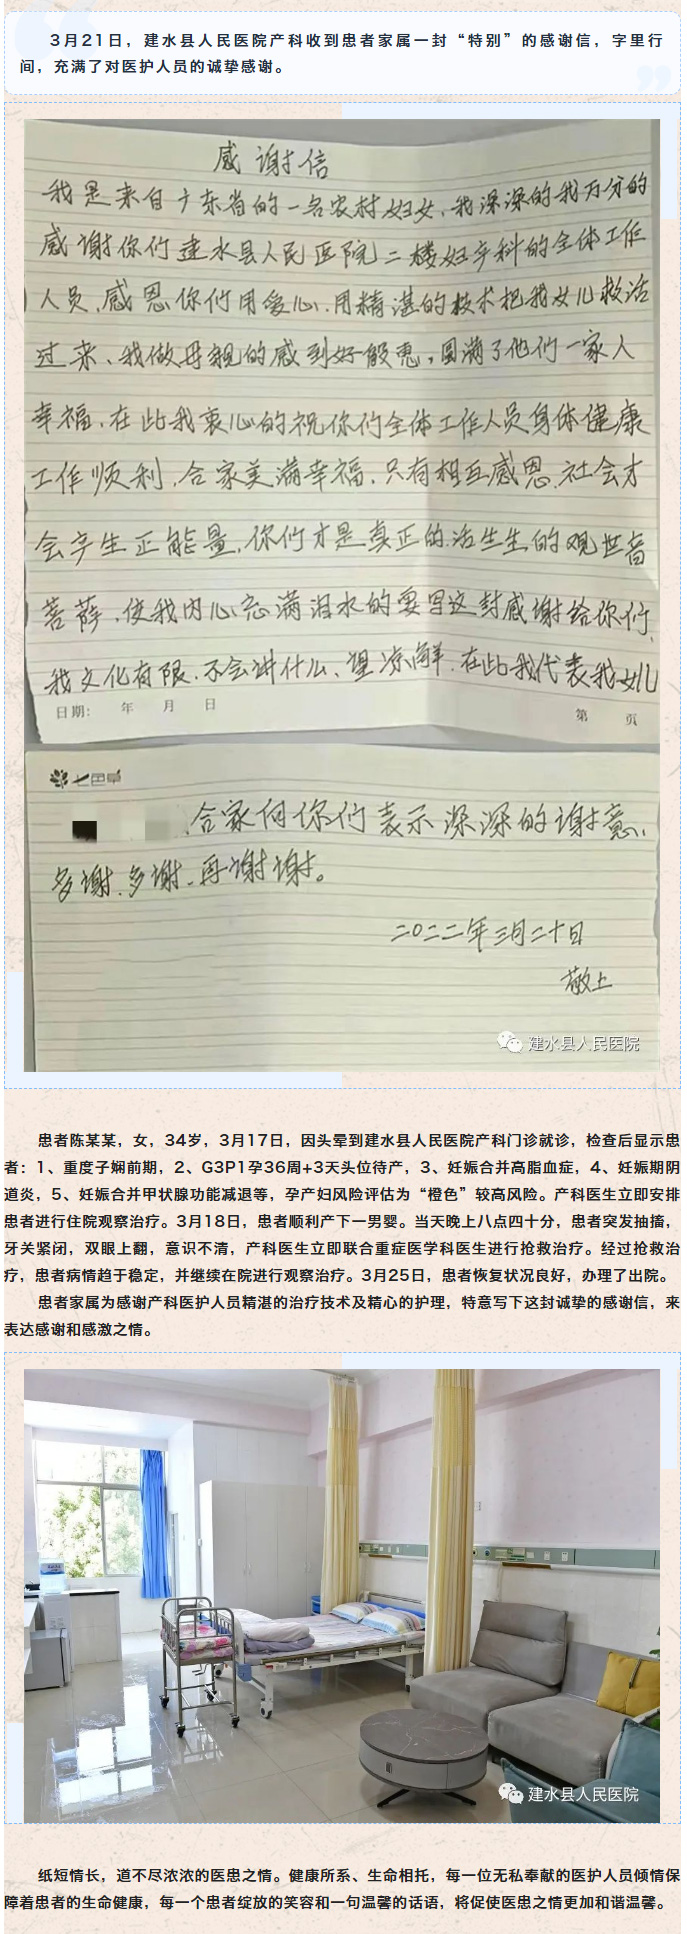 3月21日，建水县人民医院产科收到患者家属一封“特别”的感谢信，字里行
间，充满了对医护人员的诚挚感谢。
感谢信
我是来自广东省的一名农村妇女，我深深的我万分的
感谢你们建水县人民医院二楼妇产科的全体工作
人员，感恩你们用爱心，用精湛的技术把我女儿救活
过来、我做母亲的感到好殷恵，圆满了他们一家人
幸福，在此我衷心的祝你们全体工作人员身体健康
工作顺利，合家美满幸福，只有相互感恩，社会才
会产生正能量，你们才是真正的活生生的观世音
菩萨，使我内心充满泪水的要写这封感谢给你们，
我文化有限，不会讲什么，望凉解，在此我代表我女儿
日期： 年 月 日
第 页
七色草
合家向你们表示深深的谢意，
多谢、多谢、再谢谢。
二〇二二年三月二十日
敬上
建水县人民医院
患者陈某某，女，34岁，3月17日，因头晕到建水县人民医院产科门诊就诊，检查后显示患
者：1、重度子娴前期，2、G3P1孕36周+3天头位待产，3、妊娠合并高脂血症，4、妊娠期阴
道炎，5、妊娠合并甲状腺功能减退等，孕产妇风险评估为“橙色”较高风险。产科医生立即安排
患者进行住院观察治疗。3月18日，患者顺利产下一男婴。当天晚上八点四十分，患者突发抽搐，
牙关紧闭，双眼上翻，意识不清，产科医生立即联合重症医学科医生进行抢救治疗。经过抢救治
疗，患者病情趋于稳定，并继续在院进行观察治疗。3月25日，患者恢复状况良好，办理了出院。
患者家属为感谢产科医护人员精湛的治疗技术及精心的护理，特意写下这封诚挚的感谢信，来
表达感谢和感激之情。
建水县人民医院
纸短情长，道不尽浓浓的医患之情。健康所系、生命相托，每一位无私奉献的医护人员倾情保
障着患者的生命健康，每一个患者绽放的笑容和一句温馨的话语，将促使医患之情更加和谐温馨。